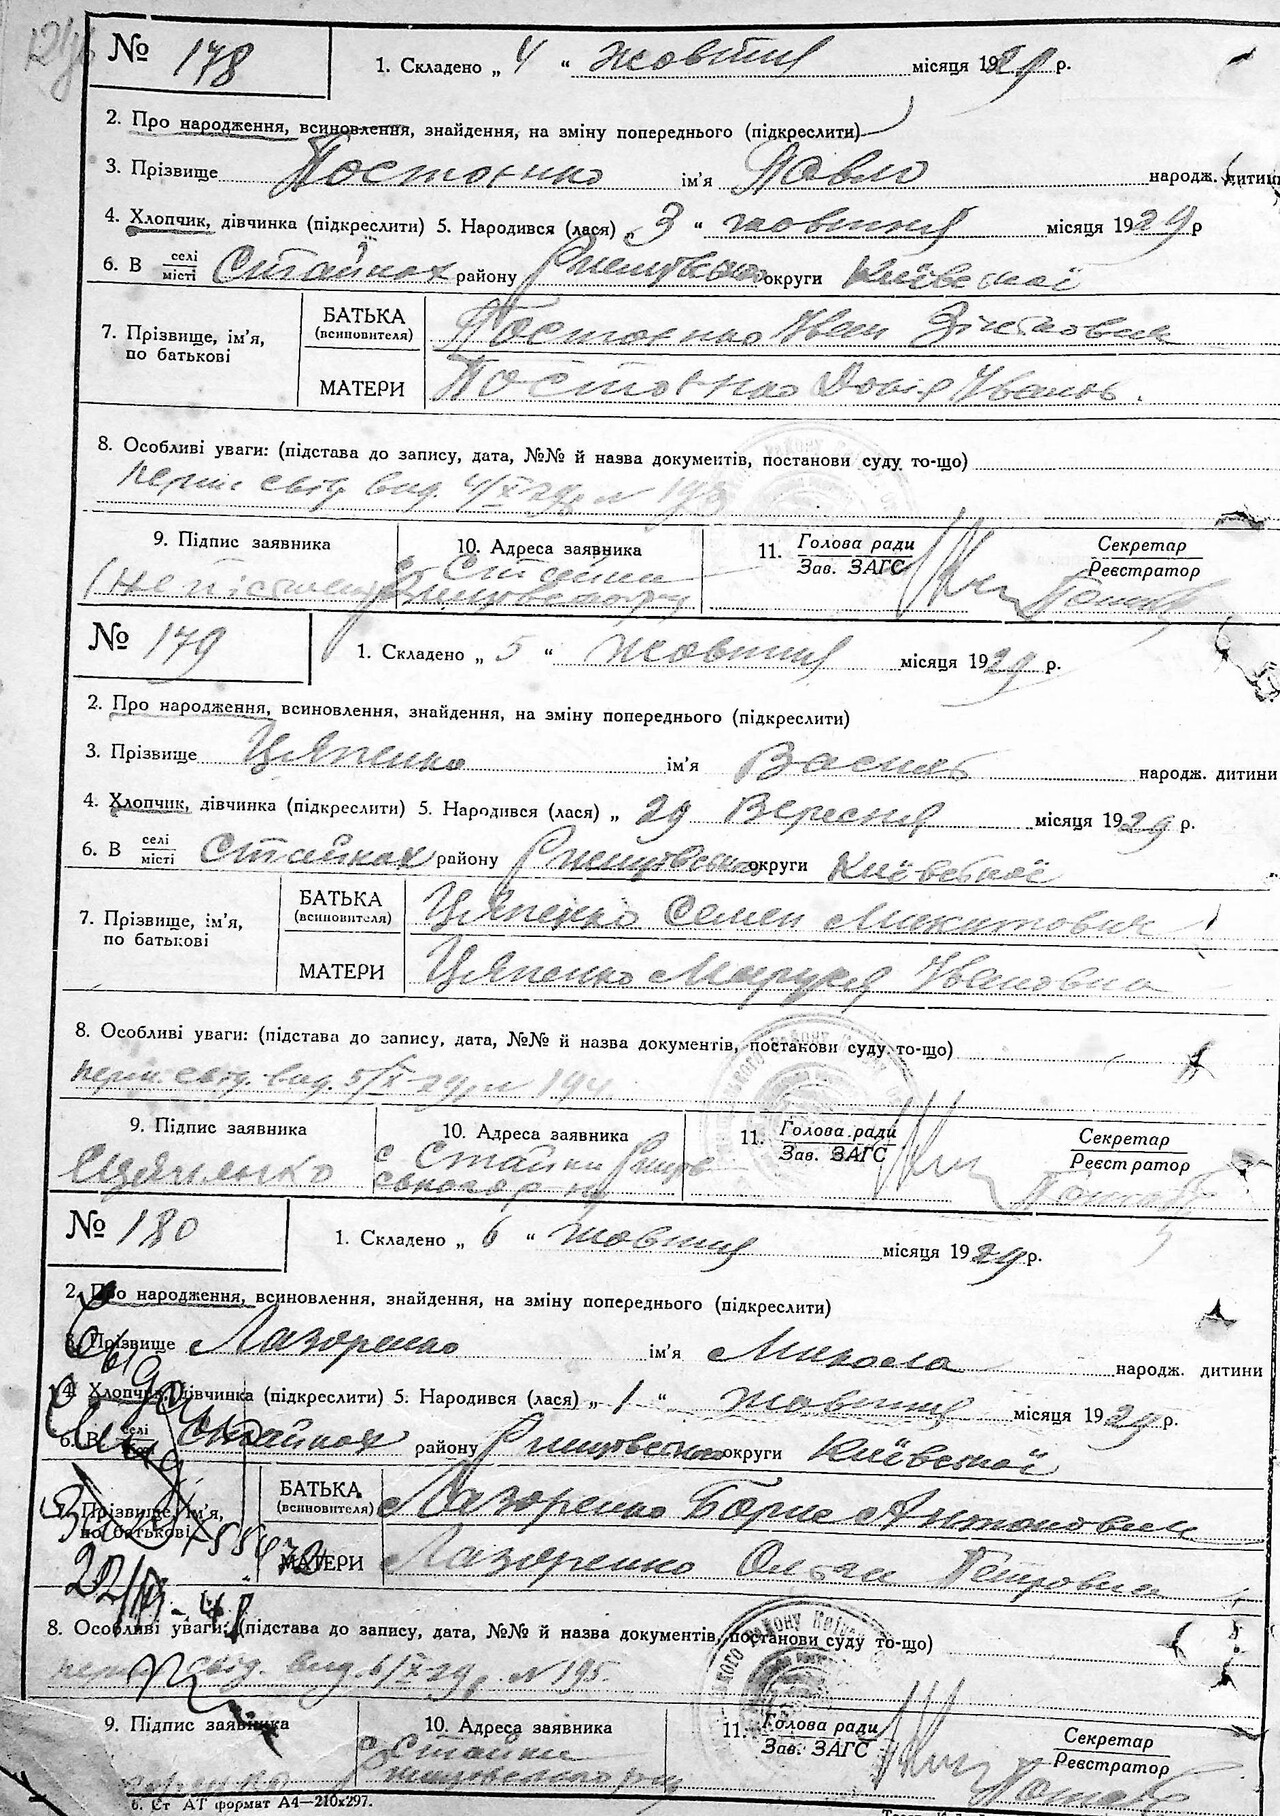 № 178
1. Складено „ 4 “ жовтня місяця 1929 р.
2. Про народження, всиновлення, знайдення, на зміну попереднього (підкреслити)
3. Прізвище ім'я Павло народж. дитини
4. Хлопчик, дівчинка (підкреслити) 5. Народився (лася) „ 3 “ жовтня місяця 1929 р
6. В селі/місті Стайках району Ржищівського округи Київської
7. Прізвище, ім'я, по батькові
БАТЬКА (всиновителя) Іван
МАТЕРИ
8. Особливі уваги: (підстава до запису, дата, №№ й назва документів, постанови суду то-що)
вид. 4/X-29р №
9. Підпис заявника
10. Адреса заявника
с. Стайки
11. Голова ради
Зав. ЗАГС
Секретар
Реєстратор
№ 179
1. Складено „ 5 “ жовтня місяця 1929 р.
2. Про народження, всиновлення, знайдення, на зміну попереднього (підкреслити)
3. Прізвище Цяпенко ім'я Василь народж. дитини
4. Хлопчик, дівчинка (підкреслити) 5. Народився (лася) „ 29 Вересня місяця 1929 р.
6. В селі/місті Стайках району Ржищівського округи Київської
7. Прізвище, ім'я, по батькові
БАТЬКА (всиновителя) Цяпенко Семен Микитович
МАТЕРИ Цяпенко Івановна
8. Особливі уваги: (підстава до запису, дата, №№ й назва документів, постанови суду то-що)
вид. 5/X-29р № 194
9. Підпис заявника
10. Адреса заявника
с Стайки
11. Голова ради
Зав. ЗАГС
Секретар
Реєстратор
№ 180
1. Складено „ 6 “ жовтня місяця 1929 р.
2. Про народження, всиновлення, знайдення, на зміну попереднього (підкреслити)
3. Прізвище Лазоренко ім'я Микола народж. дитини
4. Хлопчик, дівчинка (підкреслити) 5. Народився (лася) „ 1 “ жовтня місяця 1929 р.
6. В селі Стайках району Ржищівського округи Київської
7. Прізвище, ім'я, по батькові
БАТЬКА (всиновителя) Лазоренко Борис Антонович
МАТЕРИ Лазоренко Ольга Петровна
8. Особливі уваги: (підстава до запису, дата, №№ й назва документів, постанови суду то-що)
вид. 6/X-29р. № 195.
9. Підпис заявника
10. Адреса заявника
с Стайки
11. Голова ради
Зав. ЗАГС
Секретар
Реєстратор
6. Ст АТ формат А4—210х297.